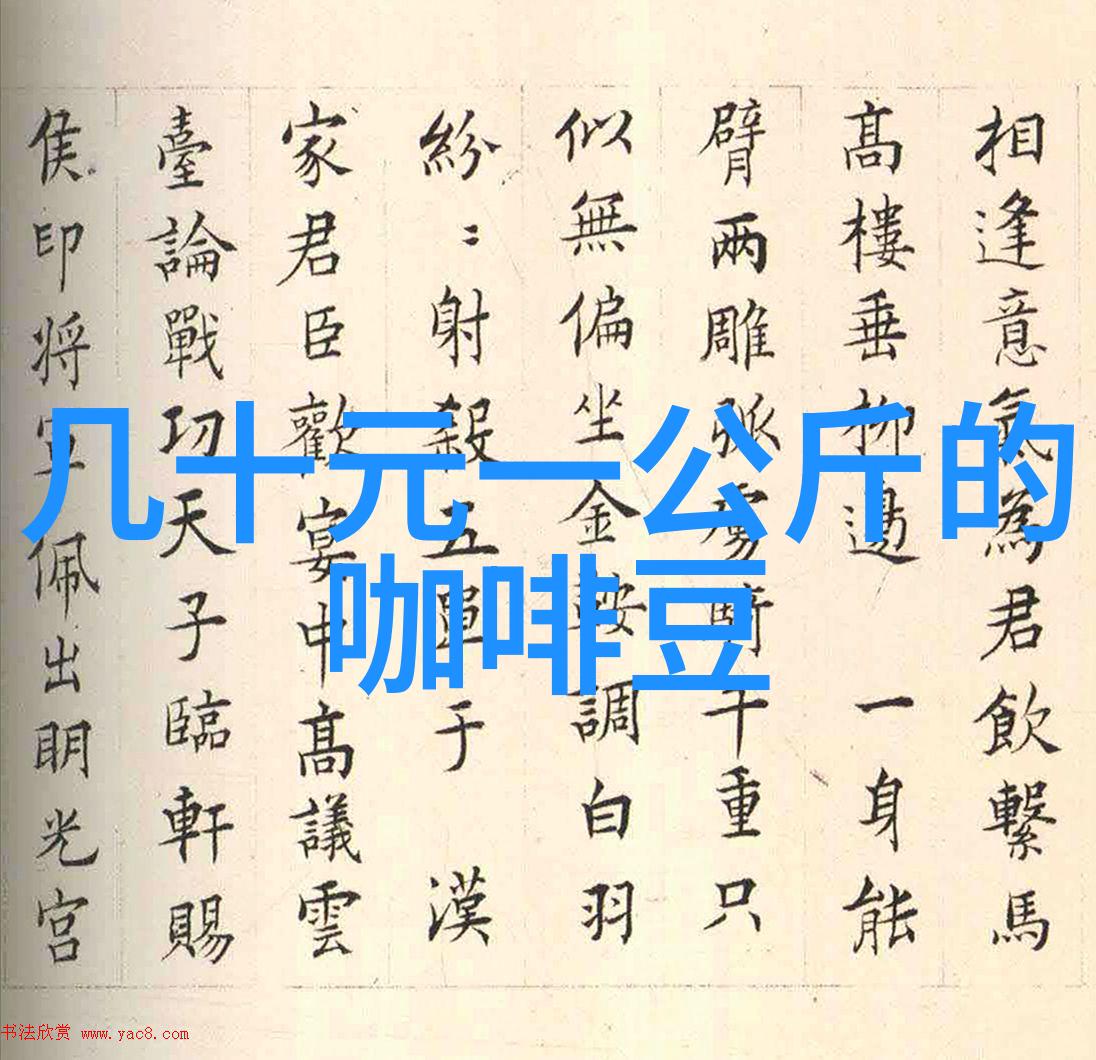 几十元一公斤的
咖啡豆
相逢意氣為君飲繫馬
髙樓垂柳邊 一身能
臂兩雕弧虜騎千重只
似無偏坐金鞍調白羽
紛〻射殺五單于 漢
家君臣歡宴中髙議雲
臺論戰功天子臨軒賜
侯印将軍佩出明光宮
书法欣赏 www.yac8.com